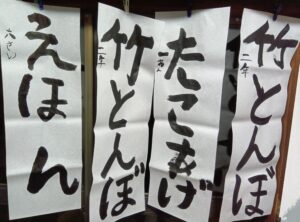 竹とんぼ
二年
たこあげ
一年
竹とんぼ
二年
えほん
六さい